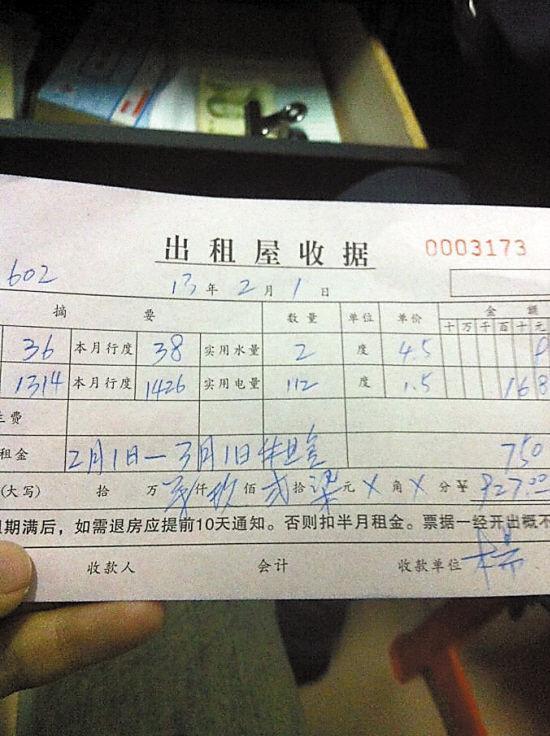 出租屋收据 0003173
602 13年2月1日
摘要 数量 单位 单价 金额
十万千百十元
36 本月行度 38 实用水量 2 度 4.5
1314 本月行度 1426 实用电量 112 度 1.5 168
生费
租金 2月1日—3月1日 750
(大写) 拾 万 仟 玖 佰 贰 拾 柒 元 X 角 X 分 ¥ 927.00
租期满后,如需退房应提前10天通知。否则扣半月租金。票据一经开出概不
收款人 会计 收款单位 杨